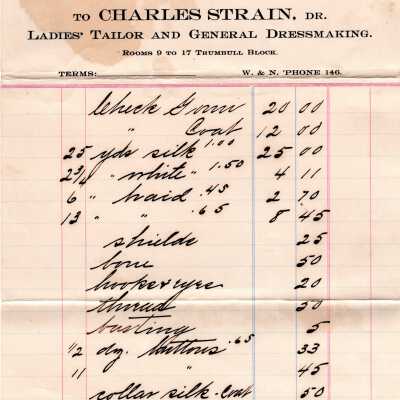 TO CHARLES STRAIN, DR.
LADIES' TAILOR AND GENERAL DRESSMAKING.
ROOMS 9 TO 17 TRUMBULL BLOCK.
TERMS: W. & N. 'PHONE 146.
Check Gown 20 00
" Coat 12 00
25 yds silk 1.00 25 00
2 3/4 " white " 1.50 4 11
6 " braid .45 2 70
13 " " .65 8 45
shields 25
bone 50
hooks & eyes 20
thread 50
basting 5
1/2 dz. buttons .65 33
11 " 45
collar silk - coat 50